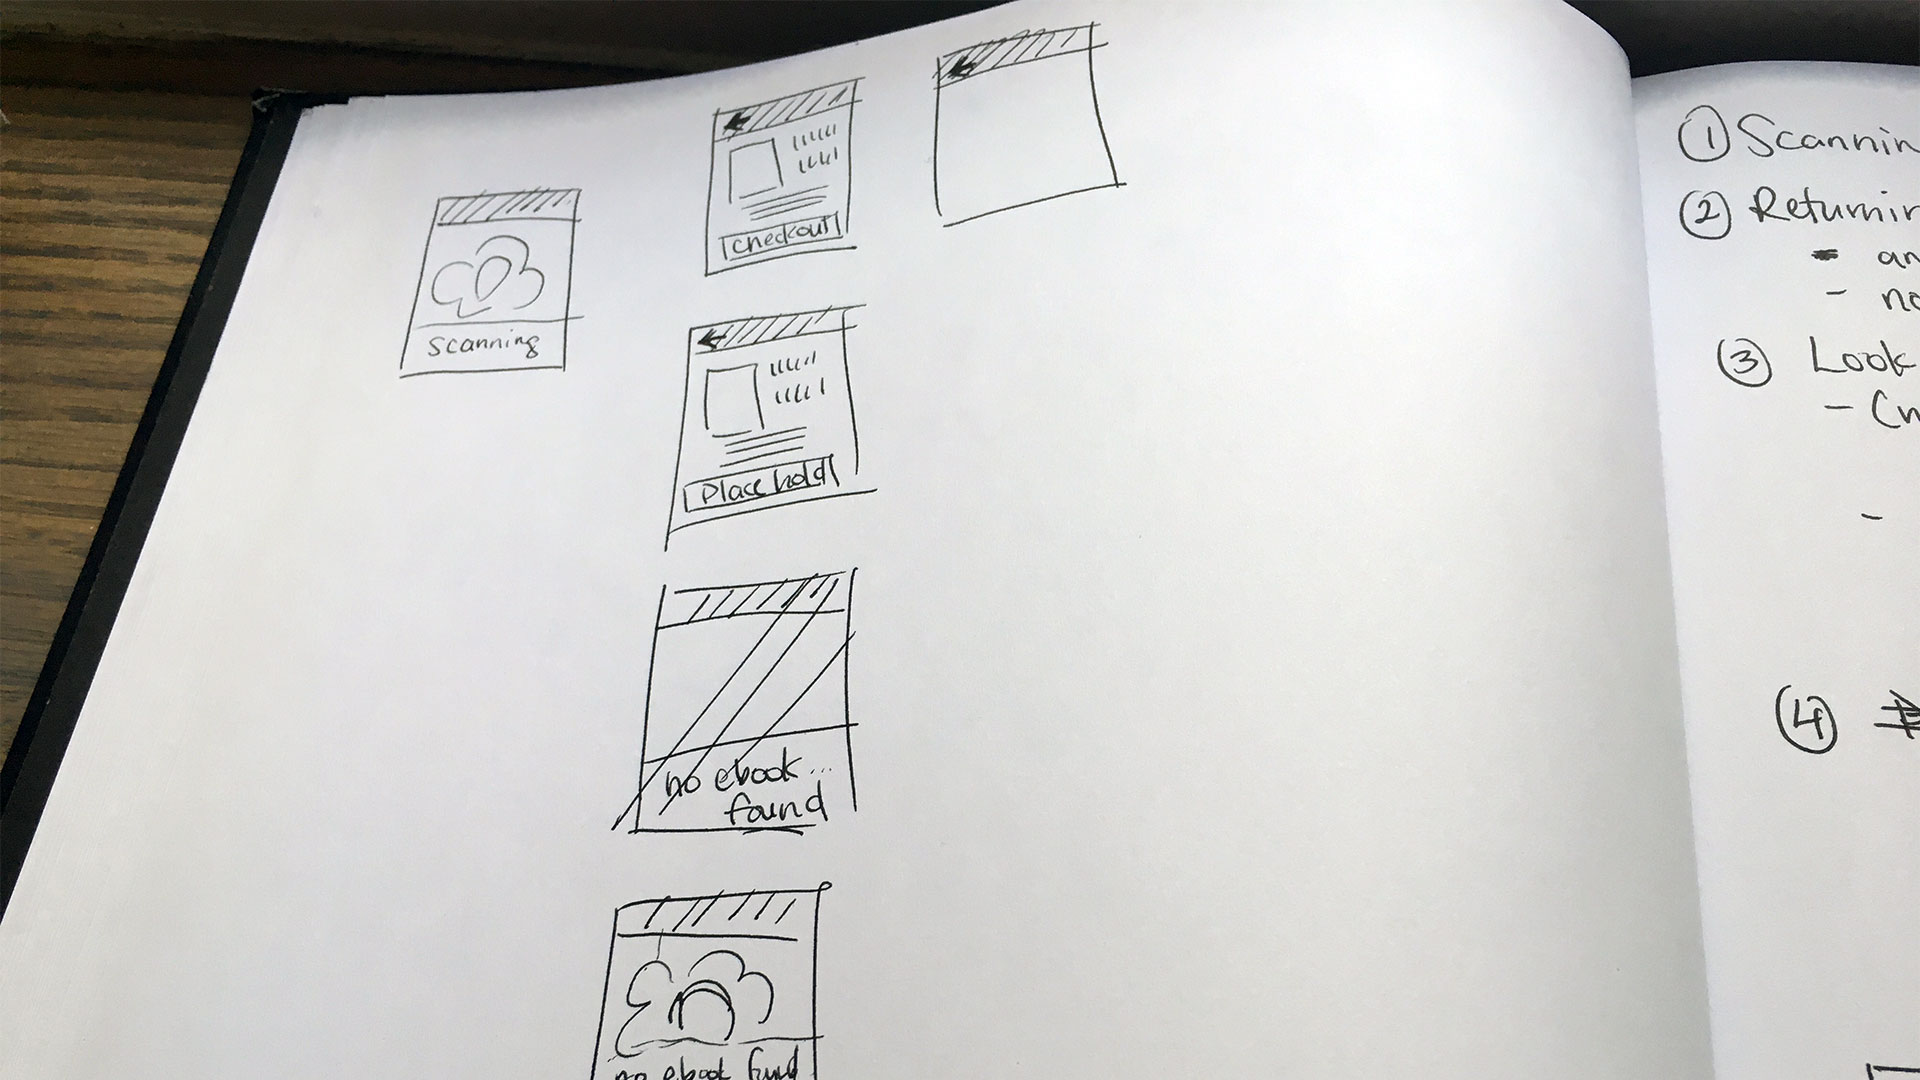 Scanning
checkout
Place hold
no ebook...
found
no ebook fund
① Scannin
② Returnin
- an
- no
③ Look
- Ch
-
④